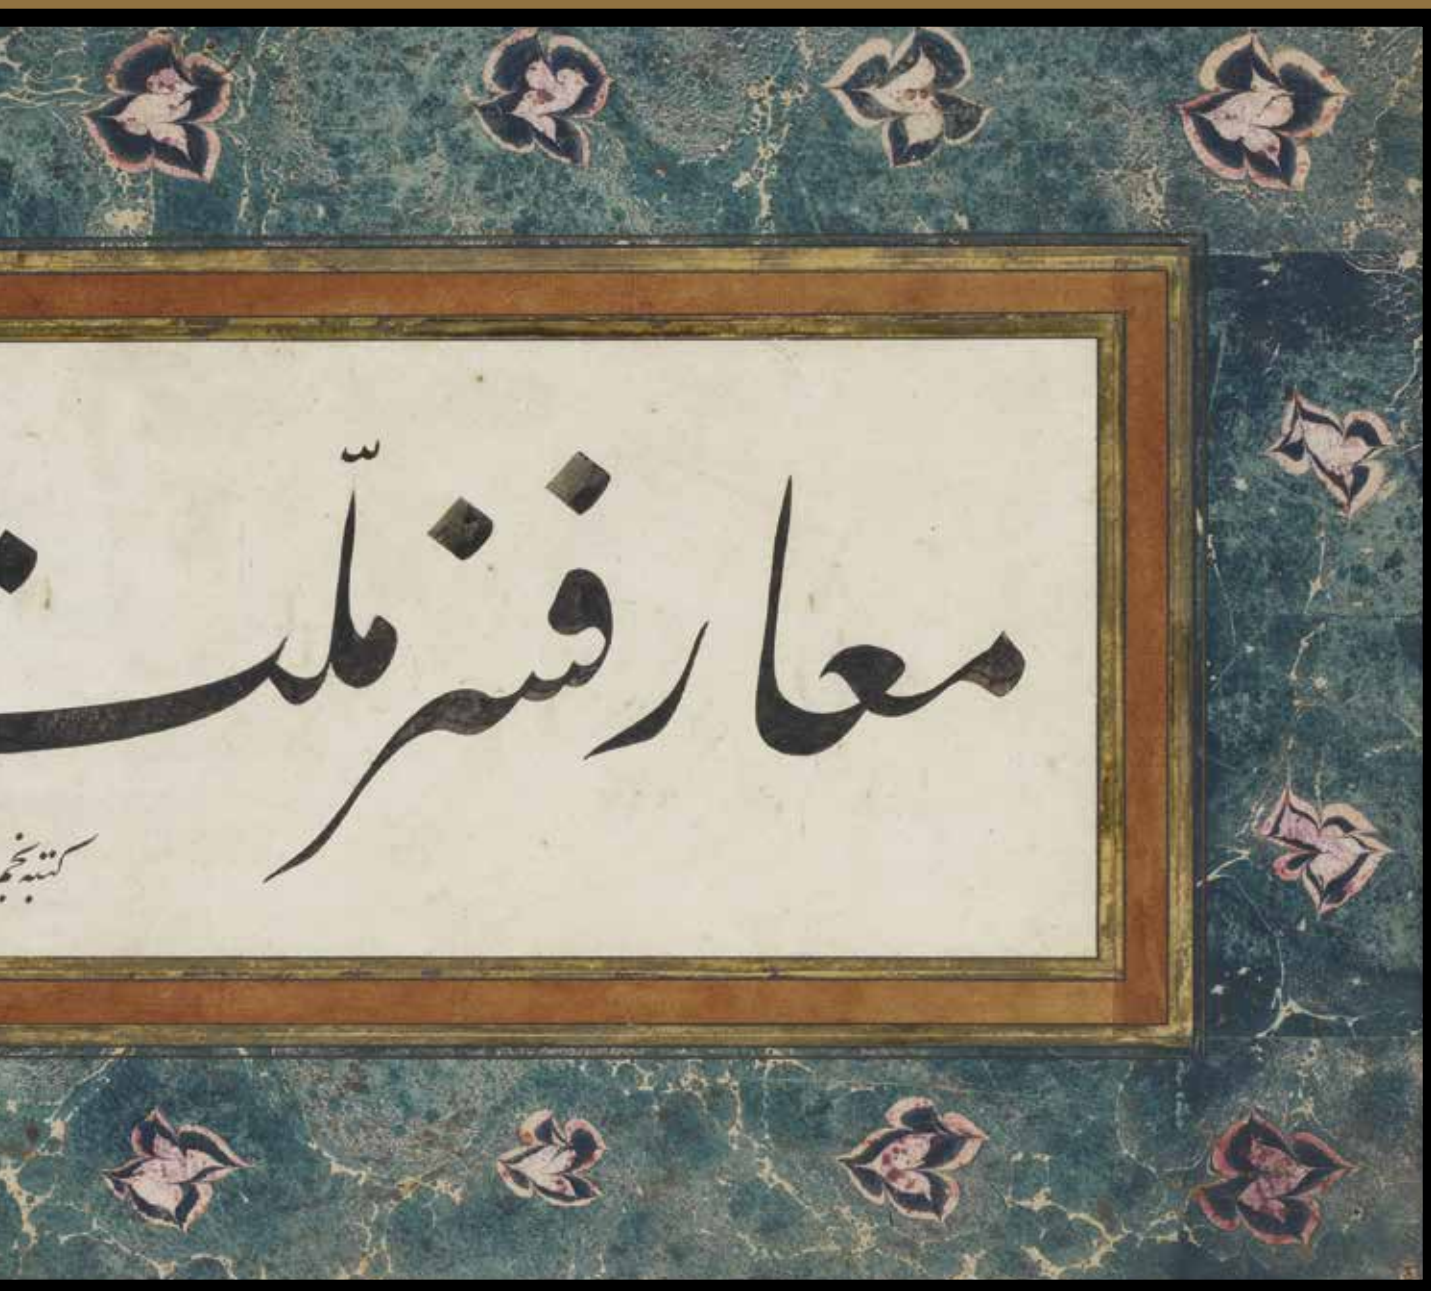 معارفسز ملّت
كتبه نجم